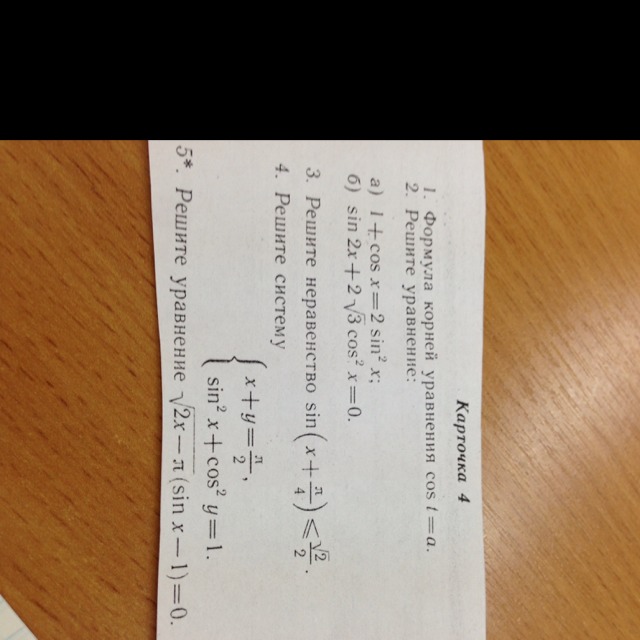 Карточка 4
1. Формула корней уравнения cos t = a.
2. Решите уравнение:
а) 1 + cos x = 2 sin² x;
б) sin 2x + 2 √3 cos² x = 0.
3. Решите неравенство sin(x + π/4) ⩽ √2/2.
4. Решите систему
{ x + y = π/2,
sin² x + cos² y = 1.
5*. Решите уравнение √(2x − π) (sin x − 1) = 0.